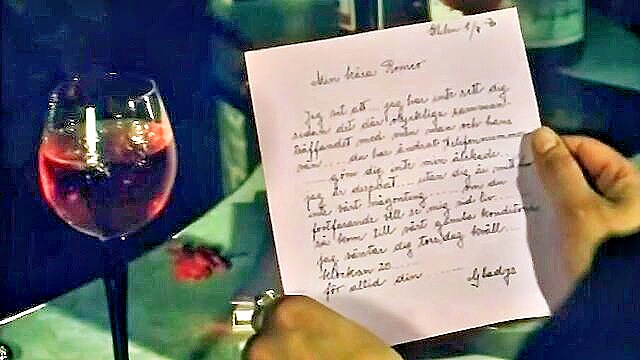 Min kära Romeo
Jag vet att jag har inte sett dig
sedan det där olyckliga samman
träffandet med min man och hans
vän .... du har ändrat telefonnummer
.... göm dig inte min älskade ..
jag är desperat .... utan dig är mitt
inte värt någonting .... om du
fortfarande vill se mig vid liv
så kom till vårt gamla konditori
jag väntar dig torsdag kväll ...
klockan 20 ........
för alltid din ....... Gladys